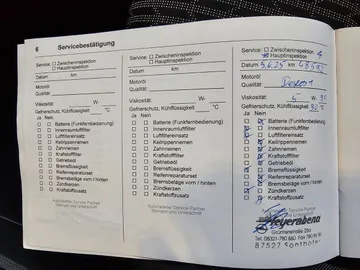 6 Servicebestätigung
Service: □ Zwischeninspektion
□ Hauptinspektion
Datum km
Motoröl
Qualität:
Viskosität W-
Gefrierschutz, Kühlflüssigkeit °C
Ja Nein
Batterie (Funkfernbedienung)
Innenraumluftfilter
Luftfiltereinsatz
Keilrippenriemen
Zahnriemen
Kraftstofffilter
Getriebeöl
Bremsflüssigkeit
Reifenreparaturset
Bremsbeläge vorn / hinten
Zündkerzen
Kraftstoffzusatz
Autorisierter Service Partner
Stempel und Unterschrift
Service: □ Zwischeninspektion
□ Hauptinspektion
Datum km
Motoröl
Qualität:
Viskosität W-
Gefrierschutz, Kühlflüssigkeit °C
Ja Nein
Batterie (Funkfernbedienung)
Innenraumluftfilter
Luftfiltereinsatz
Keilrippenriemen
Zahnriemen
Kraftstofffilter
Getriebeöl
Bremsflüssigkeit
Reifenreparaturset
Bremsbeläge vorn / hinten
Zündkerzen
Kraftstoffzusatz
Autorisierter Service Partner
Stempel und Unterschrift
Service: □ Zwischeninspektion
Hauptinspektion
Datum 5.6.25 km
Motoröl
Qualität:
Viskosität 5 W-
Gefrierschutz, Kühlflüssigkeit
Ja Nein
Batterie (Funkfernbedienung)
Innenraumluftfilter
Luftfiltereinsatz
Keilrippenriemen
Zahnriemen
Kraftstofffilter
Getriebeöl
Bremsflüssigkeit
Reifenreparaturset
Bremsbeläge vorn / hinten
Zündkerzen
Kraftstoffzusatz
Service Partner
Grüntenstraße
87527 Sonthofen